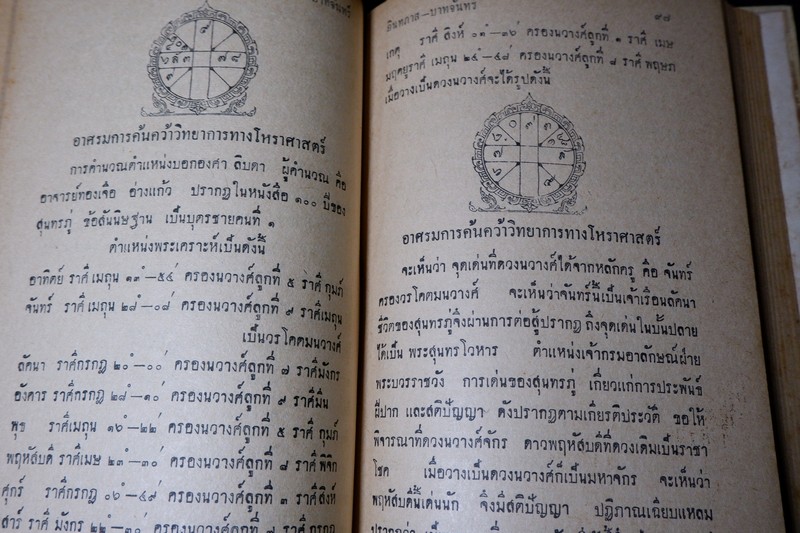 บาทจันทร์
อาศรมการค้นคว้าวิทยาการทางโหราศาสตร์
การคำนวณตำแหน่งบอกองศา ลิบดา ผู้คำนวณ คือ
อาจารย์ทองเจือ อ่างแก้ว ปรากฏในหนังสือ ๑๐๐ ปีของ
สุนทรภู่ ข้อสันนิษฐาน เป็นบุตรชายคนที่ ๑
ตำแหน่งพระเคราะห์เป็นดังนี้
อาทิตย์ ราศีเมถุน ๑๓°-๕๔' ครองนวางศ์ลูกที่ ๕ ราศีกุมภ์
จันทร์ ราศีเมถุน ๒๘°-๐๘' ครองนวางศ์ลูกที่ ๙ ราศีเมถุน
เป็นวรโคตมนวางศ์
ลัคนา ราศีกรกฎ ๒๐°-๐๐' ครองนวางศ์ลูกที่ ๗ ราศีมังกร
อังคาร ราศีกรกฎ ๒๘°-๑๐' ครองนวางศ์ลูกที่ ๙ ราศีมีน
พุธ ราศีเมถุน ๑๖°-๒๒' ครองนวางศ์ลูกที่ ๕ ราศีกุมภ์
พฤหัสบดี ราศีเมษ ๒๓°-๓๐' ครองนวางศ์ลูกที่ ๘ ราศีพิจิก
ศุกร์ ราศีกรกฎ ๐๖°-๔๙' ครองนวางศ์ลูกที่ ๓ ราศีสิงห์
สาร์ ราศีมังกร ๒๒°-๓๐' ครองนวางศ์ลูกที่ ๗ ราศีกรกฎ
ตินทภาส-บาทจันทร์ ๙๘
เกตุ ราศี สิงห์ ๐๑°-๑๖' ครองนวางศ์ลูกที่ ๑ ราศี เมษ
มฤตยูราศี เมถุน ๒๕°-๔๘' ครองนวางศ์ลูกที่ ๘ ราศี พฤษภ
เมื่อวางเป็นดวงนวางศ์จะได้รูปดังนี้
อาศรมการค้นคว้าวิทยาการทางโหราศาสตร์
จะเห็นว่า จุดเด่นที่ดวงนวางศ์ได้จากหลักครู คือ จันทร์
ครองวรโคตมนวางศ์ จะเห็นว่าจันทร์นี้เป็นเจ้าเรือนลัคนา
ชีวิตของสุนทรภู่จึงผ่านการต่อสู้ปรากฏ ถึงจุดเด่นในบั้นปลาย
ได้เป็น พระสุนทรโวหาร ตำแหน่งเจ้ากรมอาลักษณ์ฝ่าย
พระบวรราชวัง การเด่นของสุนทรภู่ เกี่ยวแก่การประพันธ์
ฝีปาก และสติปัญญา ดังปรากฏตามเกียรติประวัติ ขอให้
พิจารณาที่ดวงนวางศ์จักร ดาวพฤหัสบดีที่ดวงเดิมเป็นราชา
โชค เมื่อวางเป็นดวงนวางศ์ก็เป็นมหาจักร จะเห็นว่า
พฤหัสบดีนี้เด่นนัก จึงมีสติปัญญา ปฏิภาณเฉียบแหลม